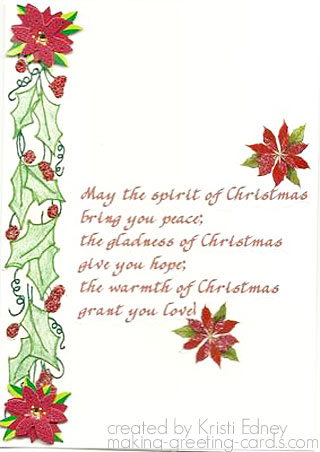 May the spirit of Christmas
bring you peace;
the gladness of Christmas
give you hope;
the warmth of Christmas
grant you love!
created by Kristi Edney
making-greeting-cards.com